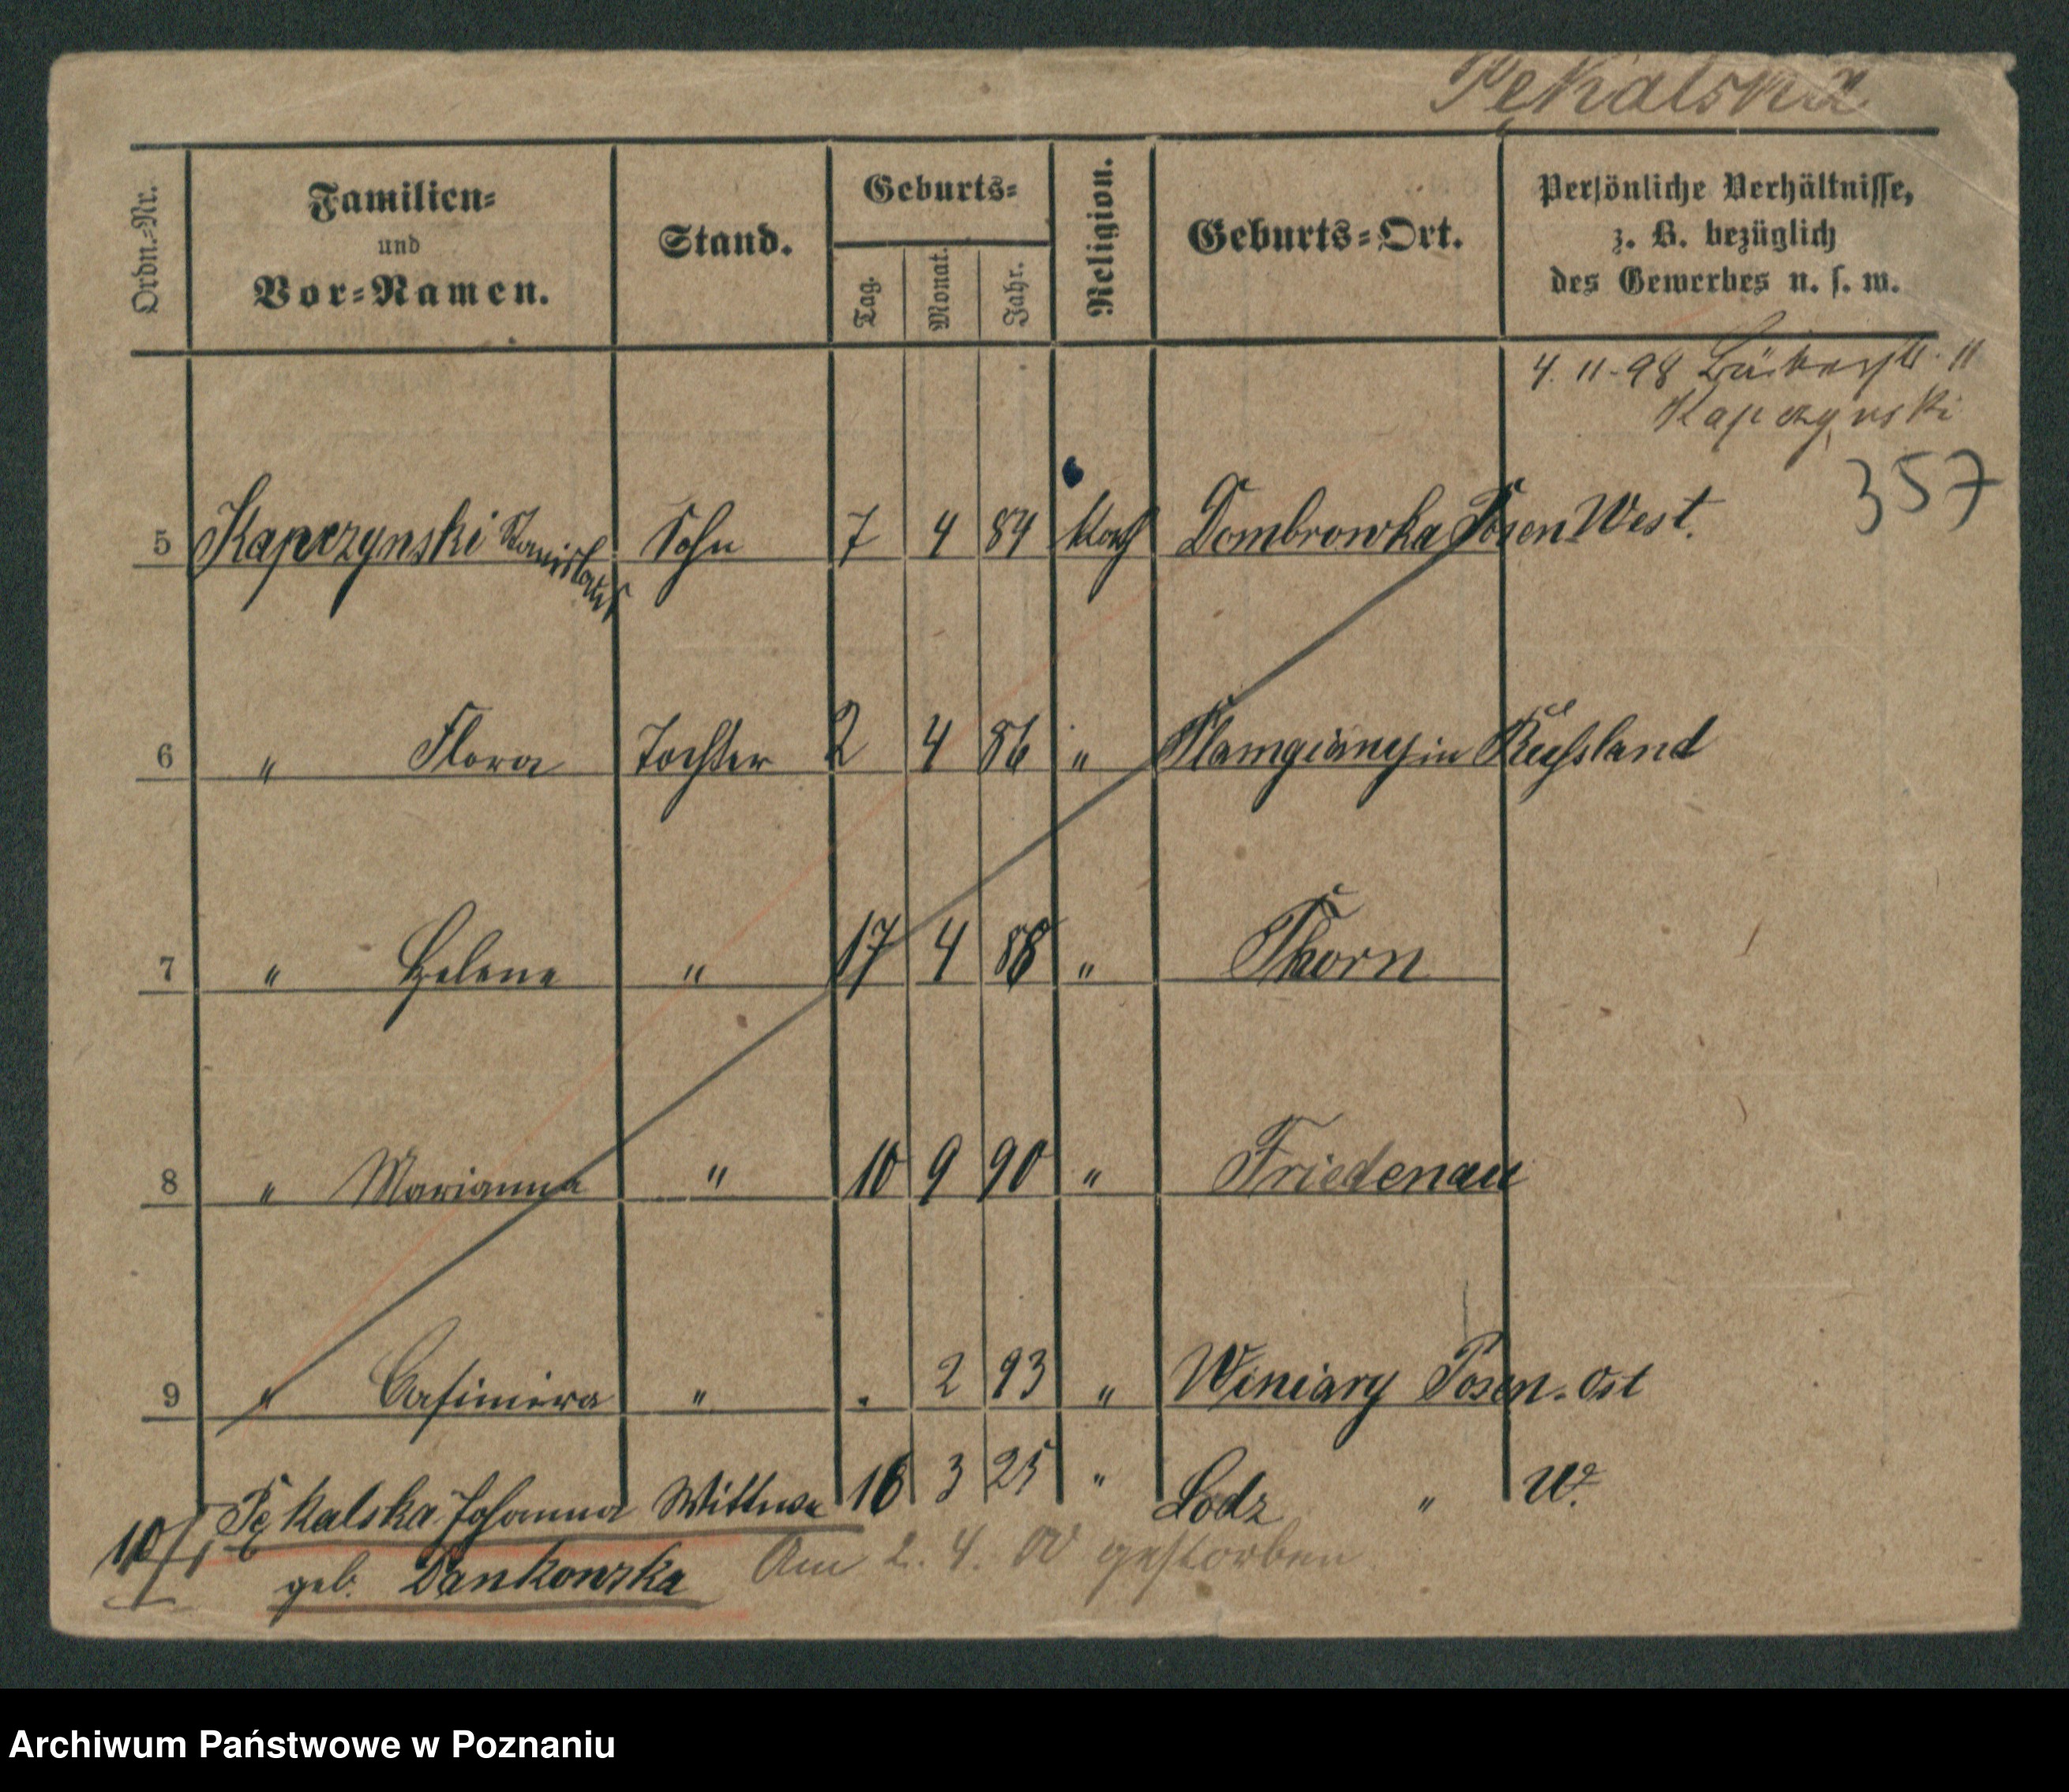 Pękalska
Ordn.-Nr.
Familien-
und
Vor-Namen.
Stand.
Geburts-
Tag.
Monat.
Jahr.
Religion.
Geburts-Ort.
Persönliche Verhältnisse,
z. B. bezüglich
des Gewerbes u. s. w.
4. 11. 98 Bäckerstr. 11
Kapczynski
357
5 Kapczynski Stanislaus Sohn 7 4 84 kath Dombrowka Posen West.
6 " Flora Tochter 2 4 86 " in Russland
7 " Helene " 17 4 88 " Thorn
8 " Marianna " 10 9 90 " Friedenau
9 " Casimira " . 2 93 " Winiary Posen-Ost
10 Pękalska Johanna Wittwe 16 3 25 " Lodz "
geb. Dankowska Am 2. 4. 00 gestorben
Archiwum Państwowe w Poznaniu